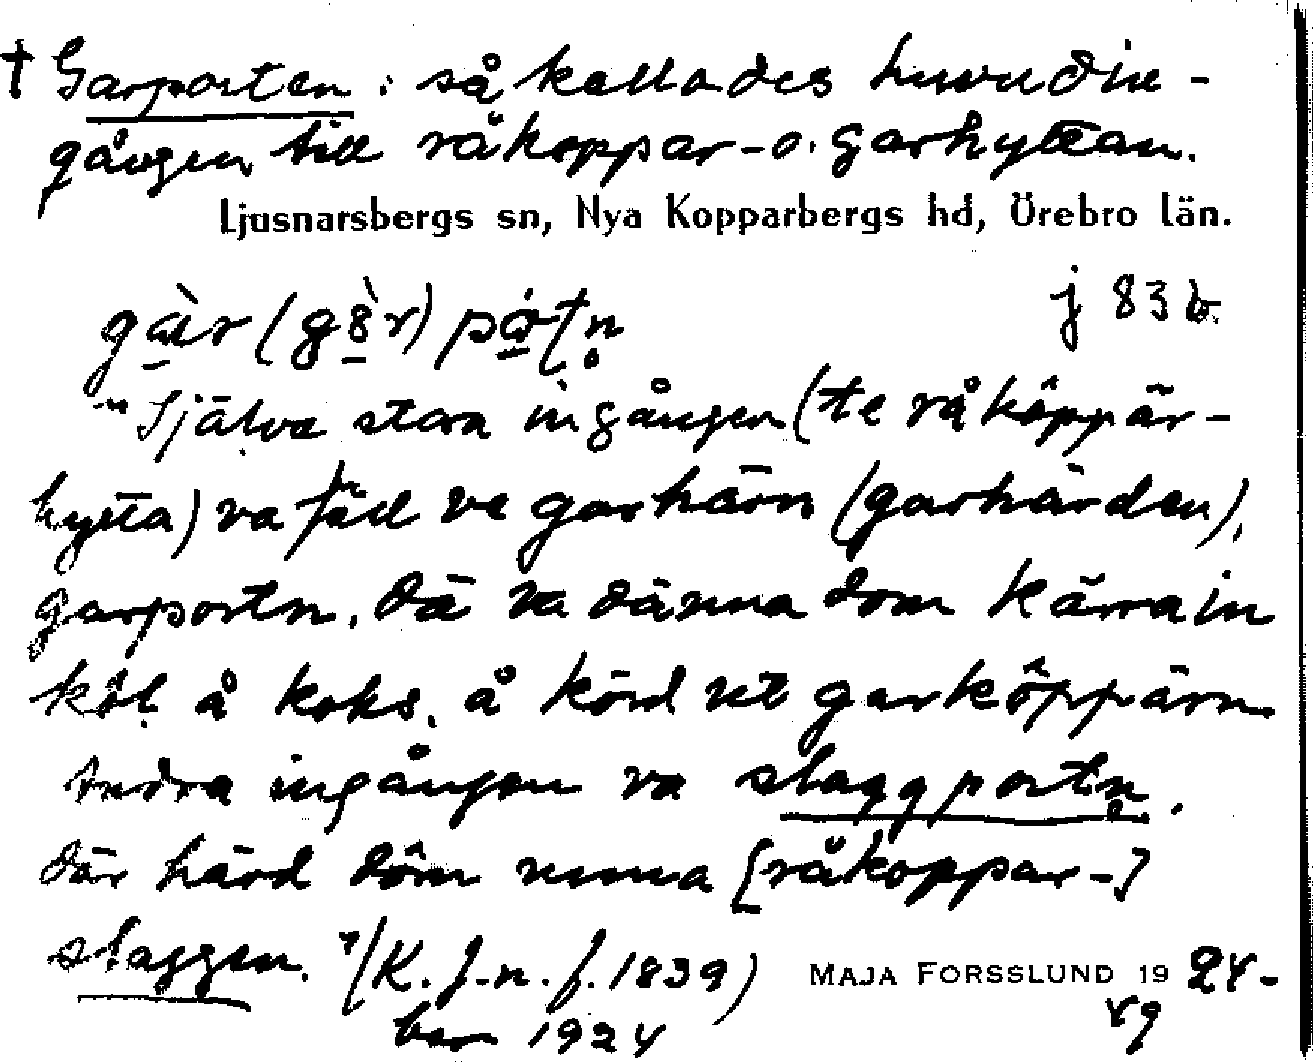 † Garporten: så kallades huvudin-
gången till råkoppar- o. garhyttan.
Ljusnarsbergs sn, Nya Kopparbergs hd, Örebro län.
j 83 b.
"Själva stora ingången (te råköppär-
hytta) va fäll ve garhärn (garhärden),
garportn. Dä va dänna dom kärra in
kôl å koks, å körd ut garköppärn
Andra ingången va slaggportn,
där härd döm unna [råkoppar-]
slaggen." (K. J-n. f. 1839)
MAJA FORSSLUND 1924-
ber 1924